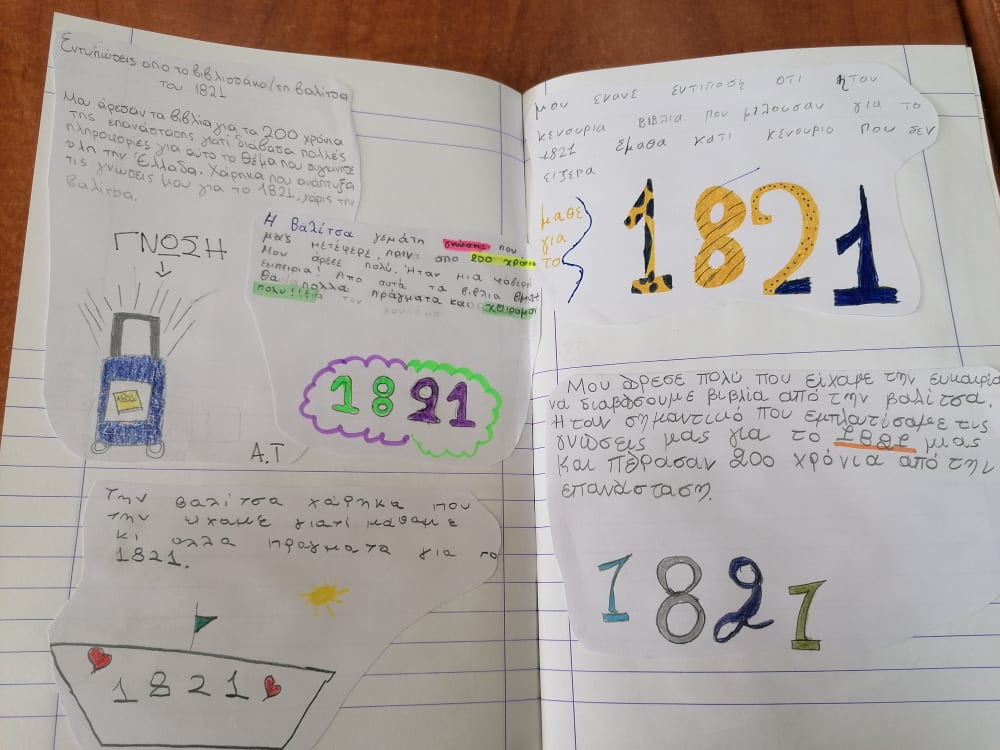 Εντυπώσεις από το βιβλιοσάκο/τη βαλίτσα
του 1821
Μου άρεσαν τα βιβλία για τα 200 χρόνια
της επανάστασης γιατί διάβασα πολλές
πληροφορίες για αυτό το θέμα που συγκινησε
όλη την Ελλάδα. Χάρηκα που ανάπτυξα
τις γνώσεις μου για το 1821, χάρις την
βαλίτσα.
ΓΝΩΣΗ
1821
Η βαλίτσα γεμάτη γνώσεις που
μας μετέφερε πριν από 200 χρόνια
Μου άρεσε πολύ. Ήταν μια φοβερή
εμπειρία! Απο αυτά τα βιβλια
πολλά πράγματα και χαίρομαι
πολυ!!
1821
Α.Τ
Την βαλίτσα χάρηκα που
την είχαμε γιατί μάθαμε
κι αλλα πραγματα για το
1821.
1821
μου εκανε εντιποση οτι ηταν
κενουρια βιβλια που μιλουσαν για το
1821 εμαθα κατι κενουριο που δεν
ειξερα
μαθε
για
το
1821
Μου άρεσε πολύ που είχαμε την ευκαιρία
να διαβάσουμε βιβλία από την βαλίτσα.
Ήταν σημαντικό που εμπλατίσαμε τις
γνώσεις μας για το 1821 μιας
και πέρασαν 200 χρόνια από την
επανάσταση.
1821